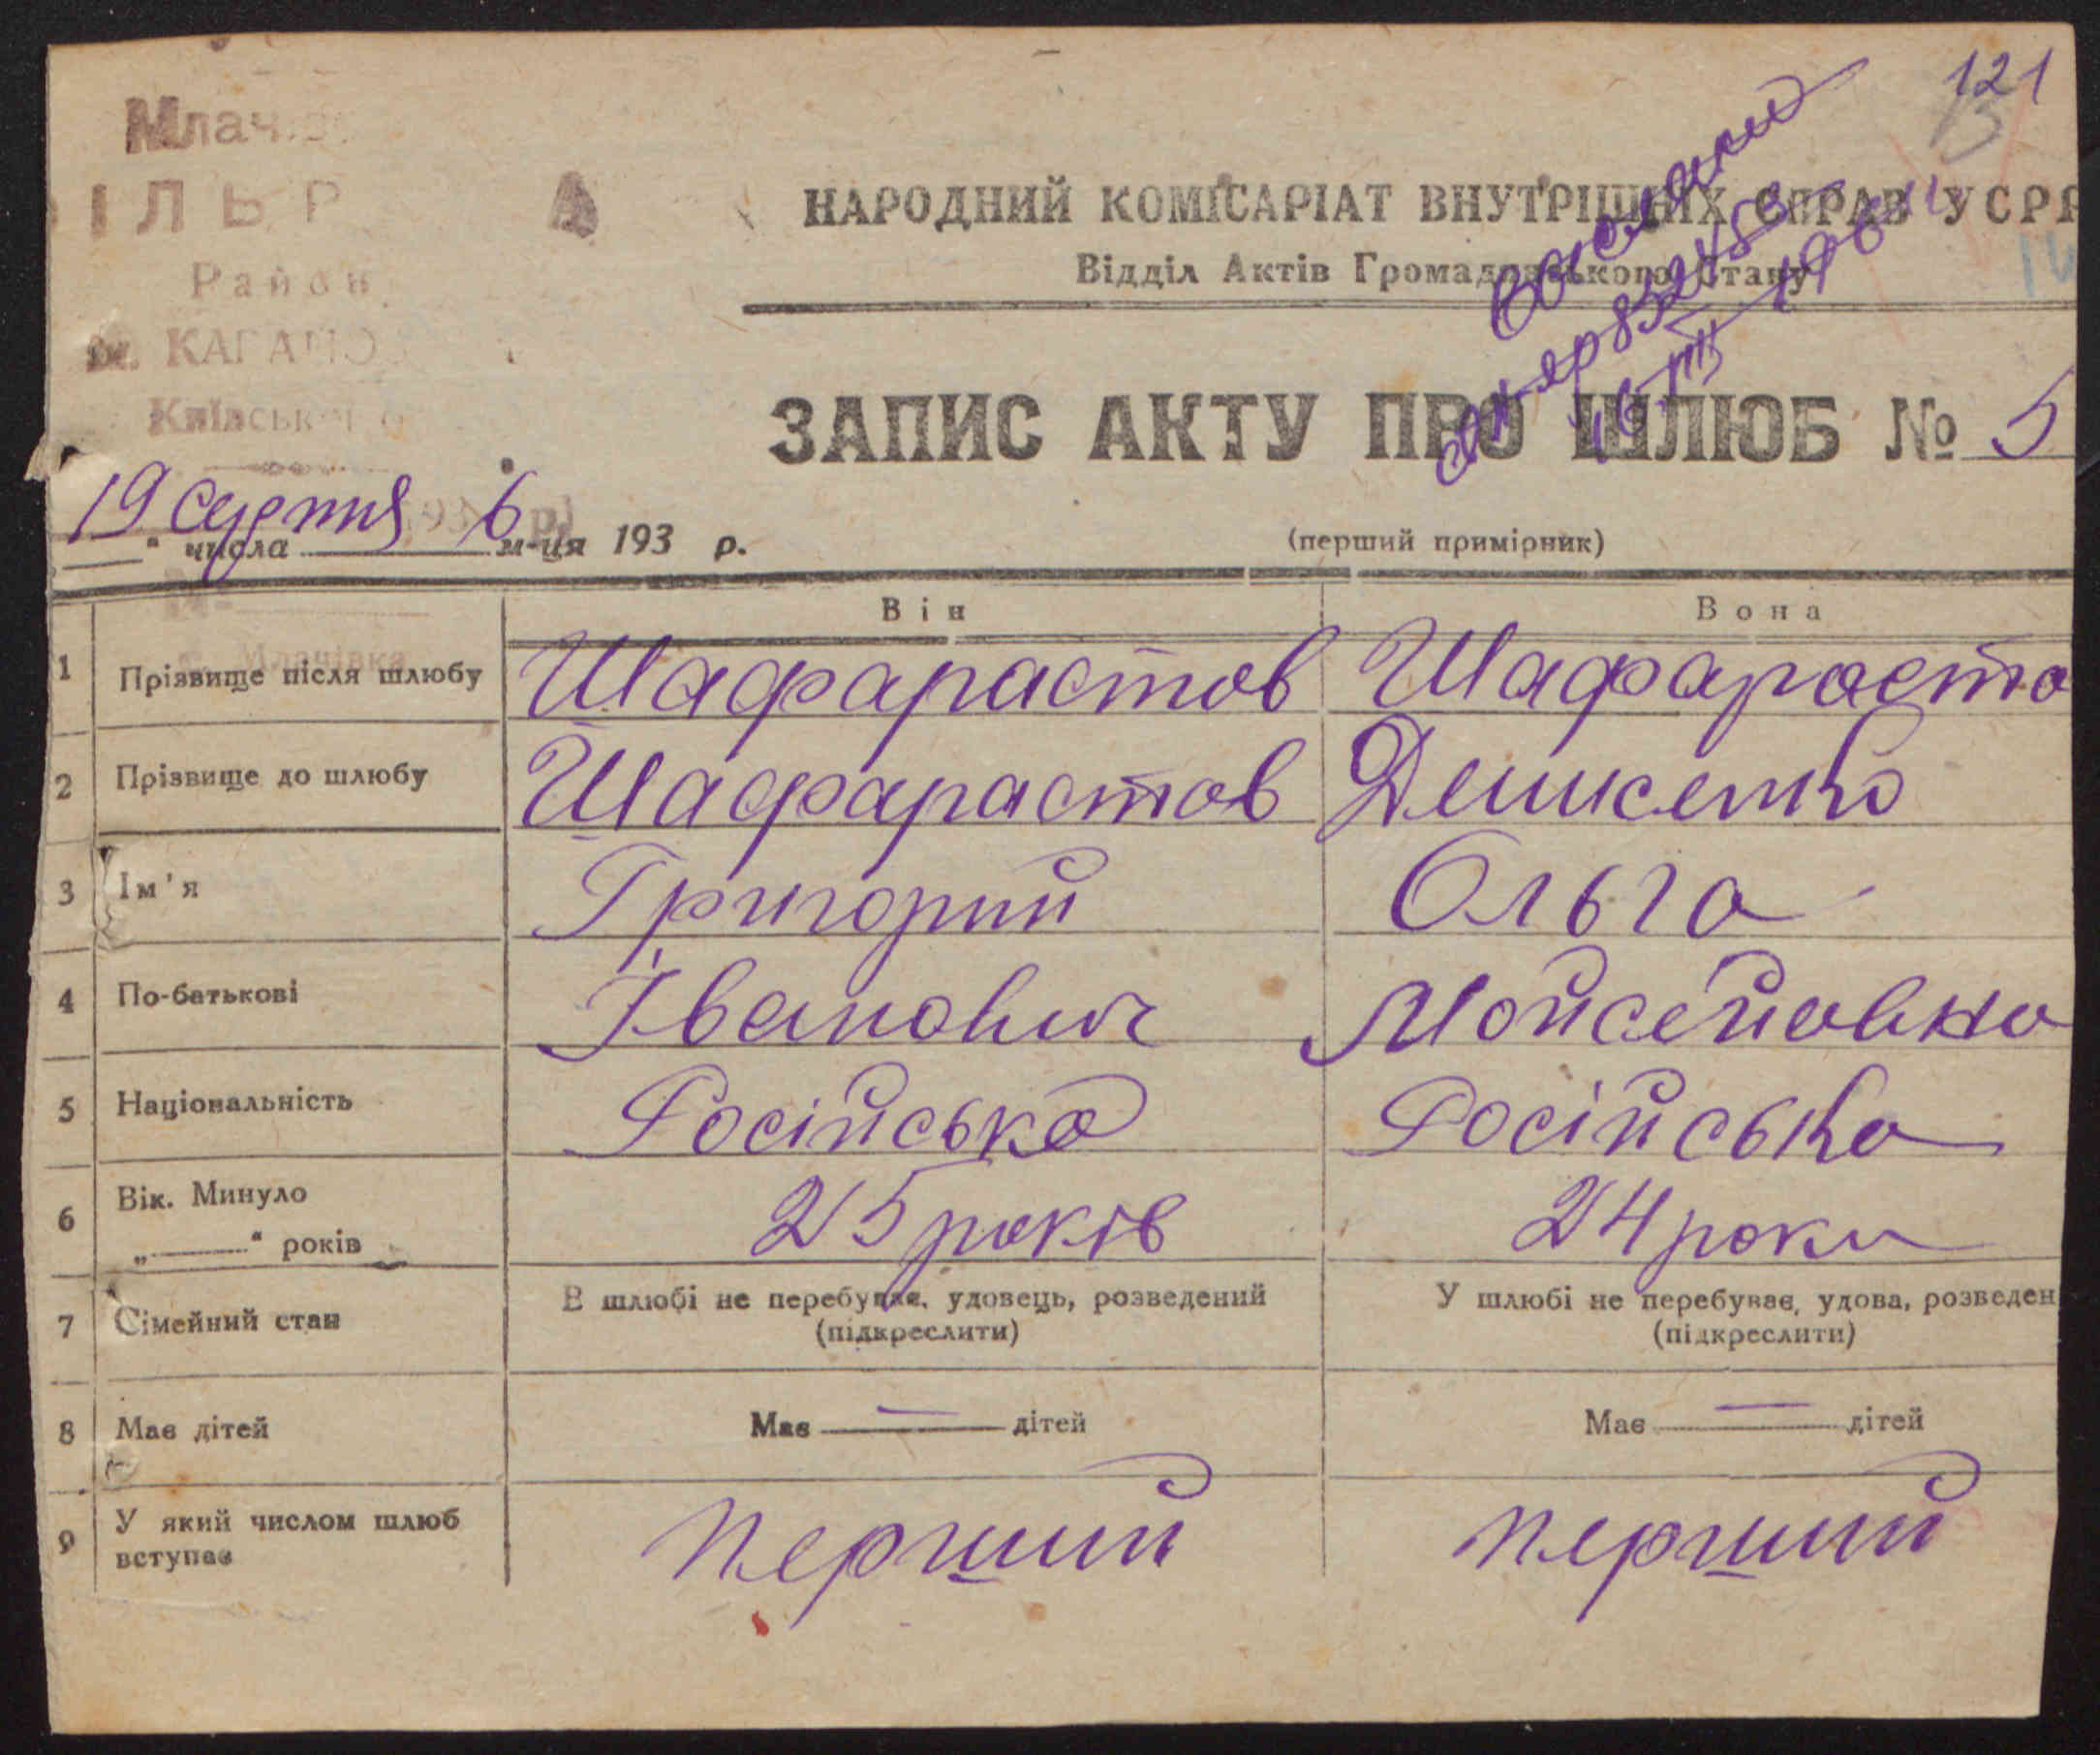 121
13
Млач
ІЛЬР
Район
КАГАНО
Київсько
НАРОДНИЙ КОМІСАРІАТ ВНУТРІШНІХ СПРАВ УСРР
Відділ Актів Громадянського Стану
ЗАПИС АКТУ ПРО ШЛЮБ № 5
19 серпня 6
" числа м-ця 193 р.
(перший примірник)
с. Млачівка
Він Вона
1 Прізвище після шлюбу Шафарастов Шафараста
2 Прізвище до шлюбу Шафарастов Денисенко
3 Ім'я Григорий Ольга
4 По-батькові Іванович Мойсейовна
5 Національність Російська Російська
6 Вік. Минуло 25 років 24 роки
„ “ років
7 Сімейний стан В шлюбі не перебуває, удовець, розведений У шлюбі не перебуває, удова, розведен
(підкреслити) (підкреслити)
8 Має дітей Має — дітей Має — дітей
9 У який числом шлюб вступає Перший Перший